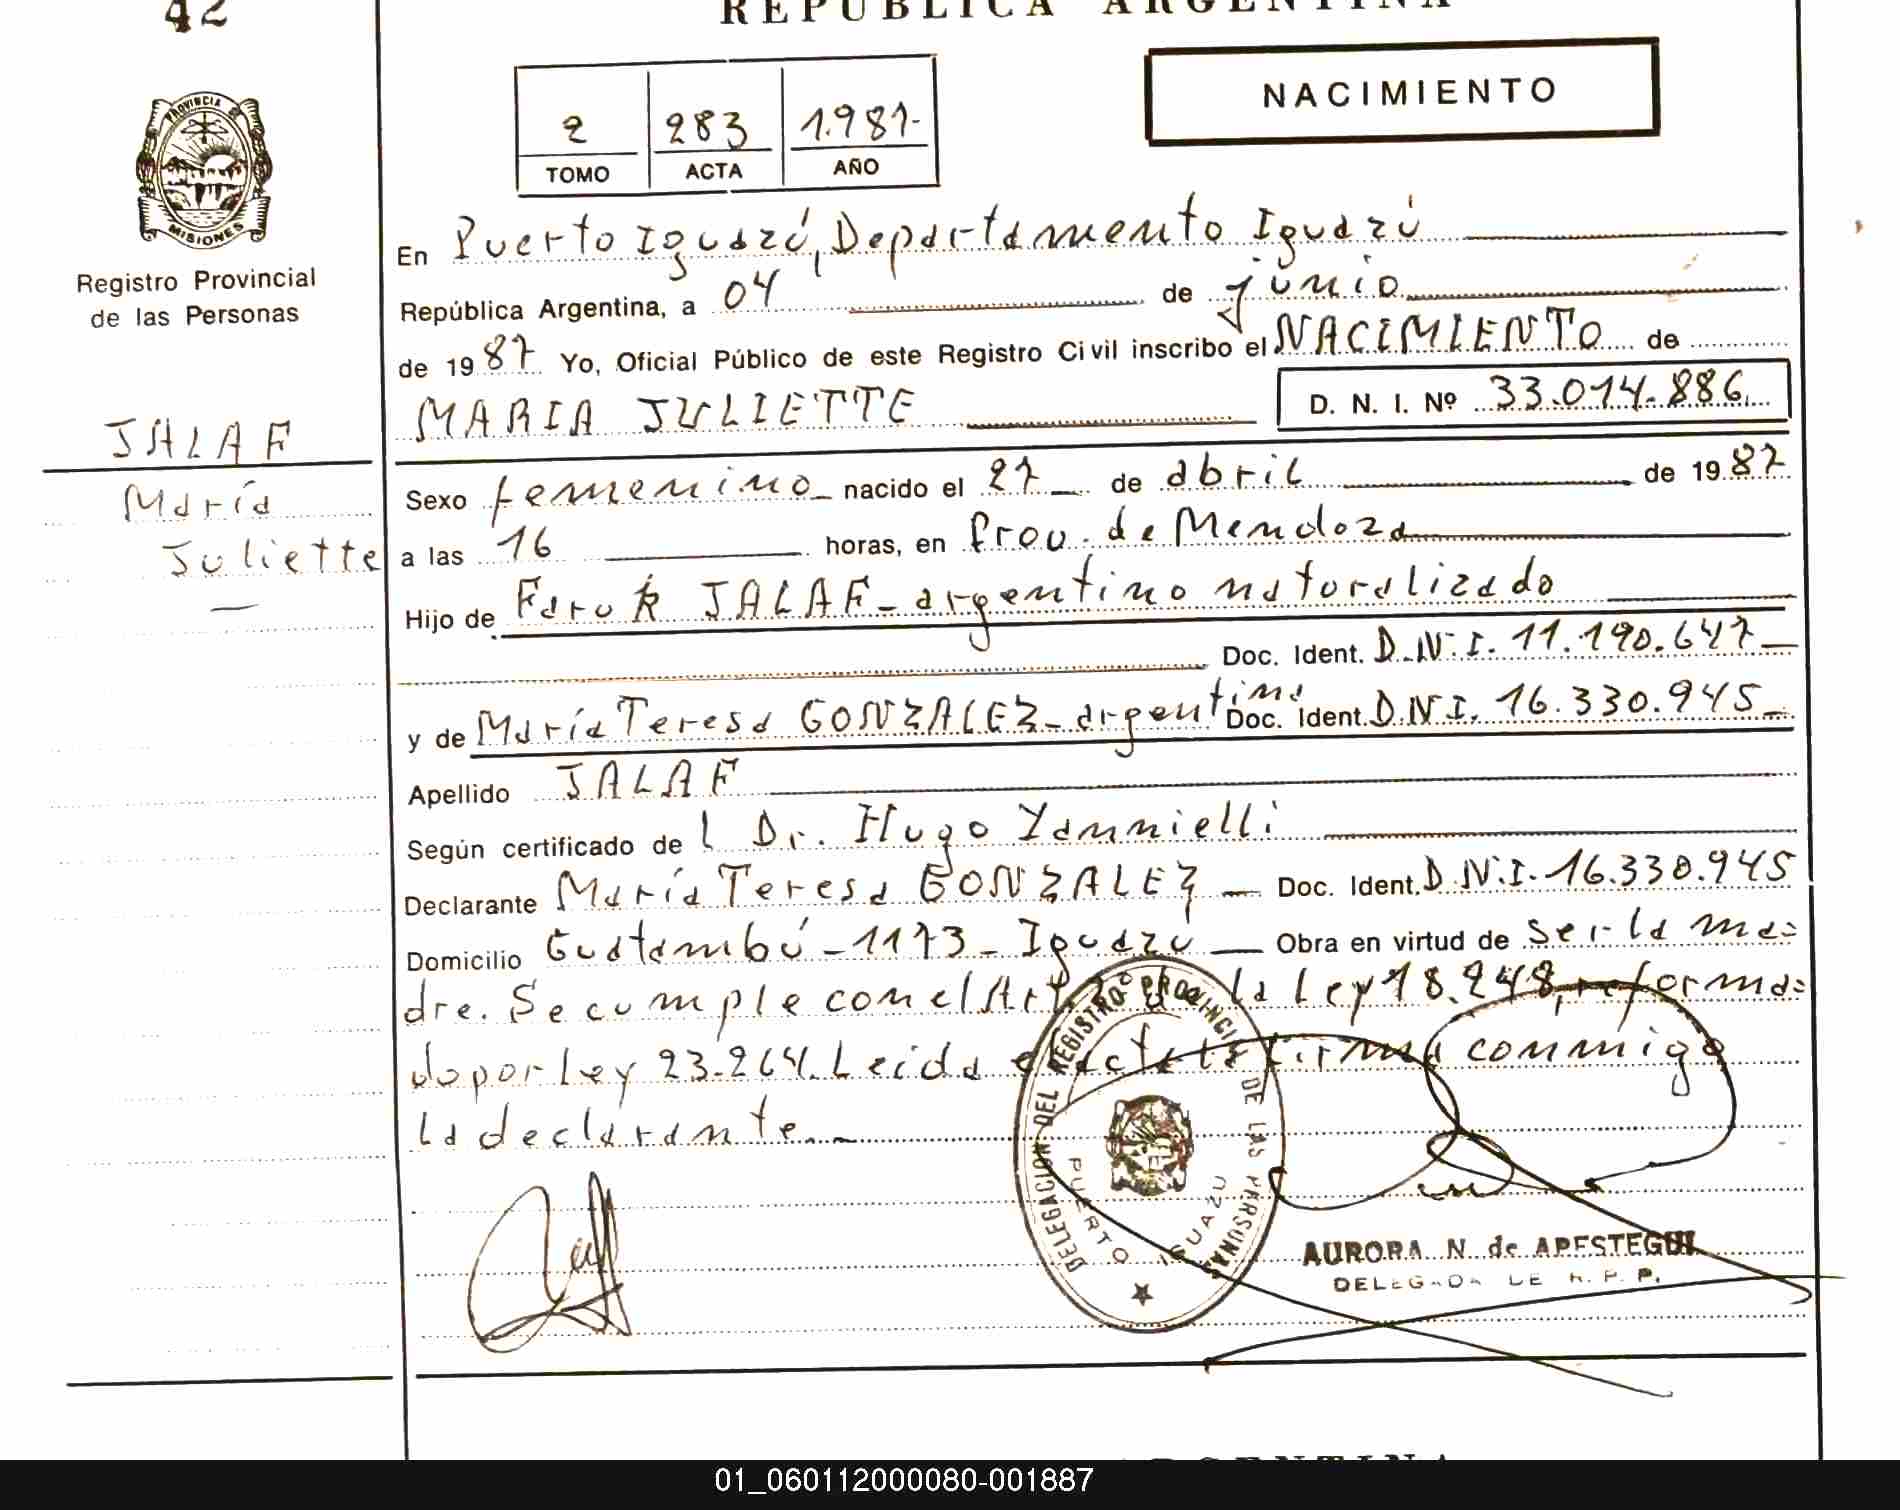 42
REPUBLICA ARGENTINA
NACIMIENTO
2 283 1.987-
TOMO ACTA AÑO
PROVINCIA
MISIONES
Registro Provincial
de las Personas
JALAF
María
Juliette
En Puerto Iguazú, Departamento Iguazú
República Argentina, a 04 de junio
de 1987 Yo, Oficial Público de este Registro Civil inscribo el NACIMIENTO de
MARIA JULIETTE D. N. I. Nº 33.014.886
Sexo femenino nacido el 27 de abril de 1987
a las 16 horas, en Prov. de Mendoza
Hijo de Faruk JALAF - argentino naturalizado
Doc. Ident. D.N.I. 11.190.647
y de María Teresa GONZALEZ - argentina Doc. Ident. D.N.I. 16.330.945
Apellido JALAF
Según certificado de l Dr. Hugo Yannielli
Declarante María Teresa GONZALEZ Doc. Ident. D.N.I. 16.330.945
Domicilio Guatambú - 1173 - Iguazú Obra en virtud de ser la ma=
dre. Se cumple con el Art. la Ley 18.248, reforma=
do por ley 23.264. Leida el acta la firma conmigo
la declarante.
DELEGACION DEL REGISTRO PROVINCIAL DE LAS PERSONAS
PUERTO IGUAZU
AURORA N. de APESTEGUI
DELEGADA DE R. P. P.
ARGENTINA
01_060112000080-001887